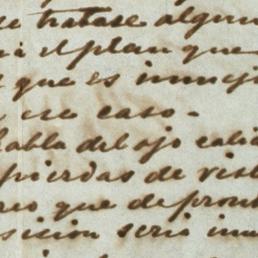 se tratase algun
el plan que
que es inmej
ese caso.
habla del ojo calie
pierdas de vist
creo que de pront
sicion seria inm